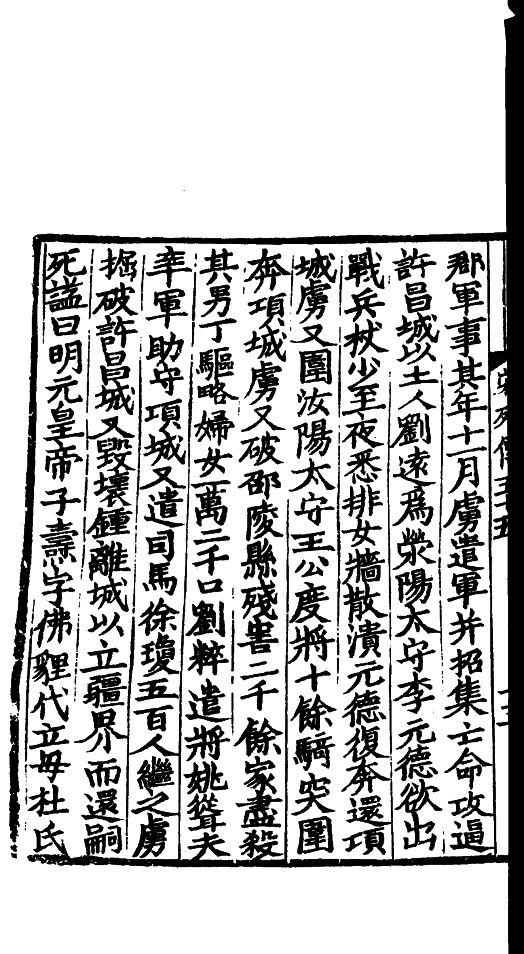 郡軍事其年十一月虜遣軍并招集亡命攻逼
許昌城以土人劉遠爲滎陽太守李元德欲出
戰兵杖少至夜悉排女牆散潰元德復奔還項
城虜又圍汝陽太守王公度將十餘騎突圍
奔項城虜又破邵陵縣殘害二千餘家盡殺
其男丁驅略婦女一萬二千口劉粹遣將姚聳夫
率軍助守項城又遣司馬徐瓊五百人繼之虜
掘破許昌城又毀壞鍾離城以立疆界而還嗣
死謚曰明元皇帝子燾字佛貍代立母杜氏